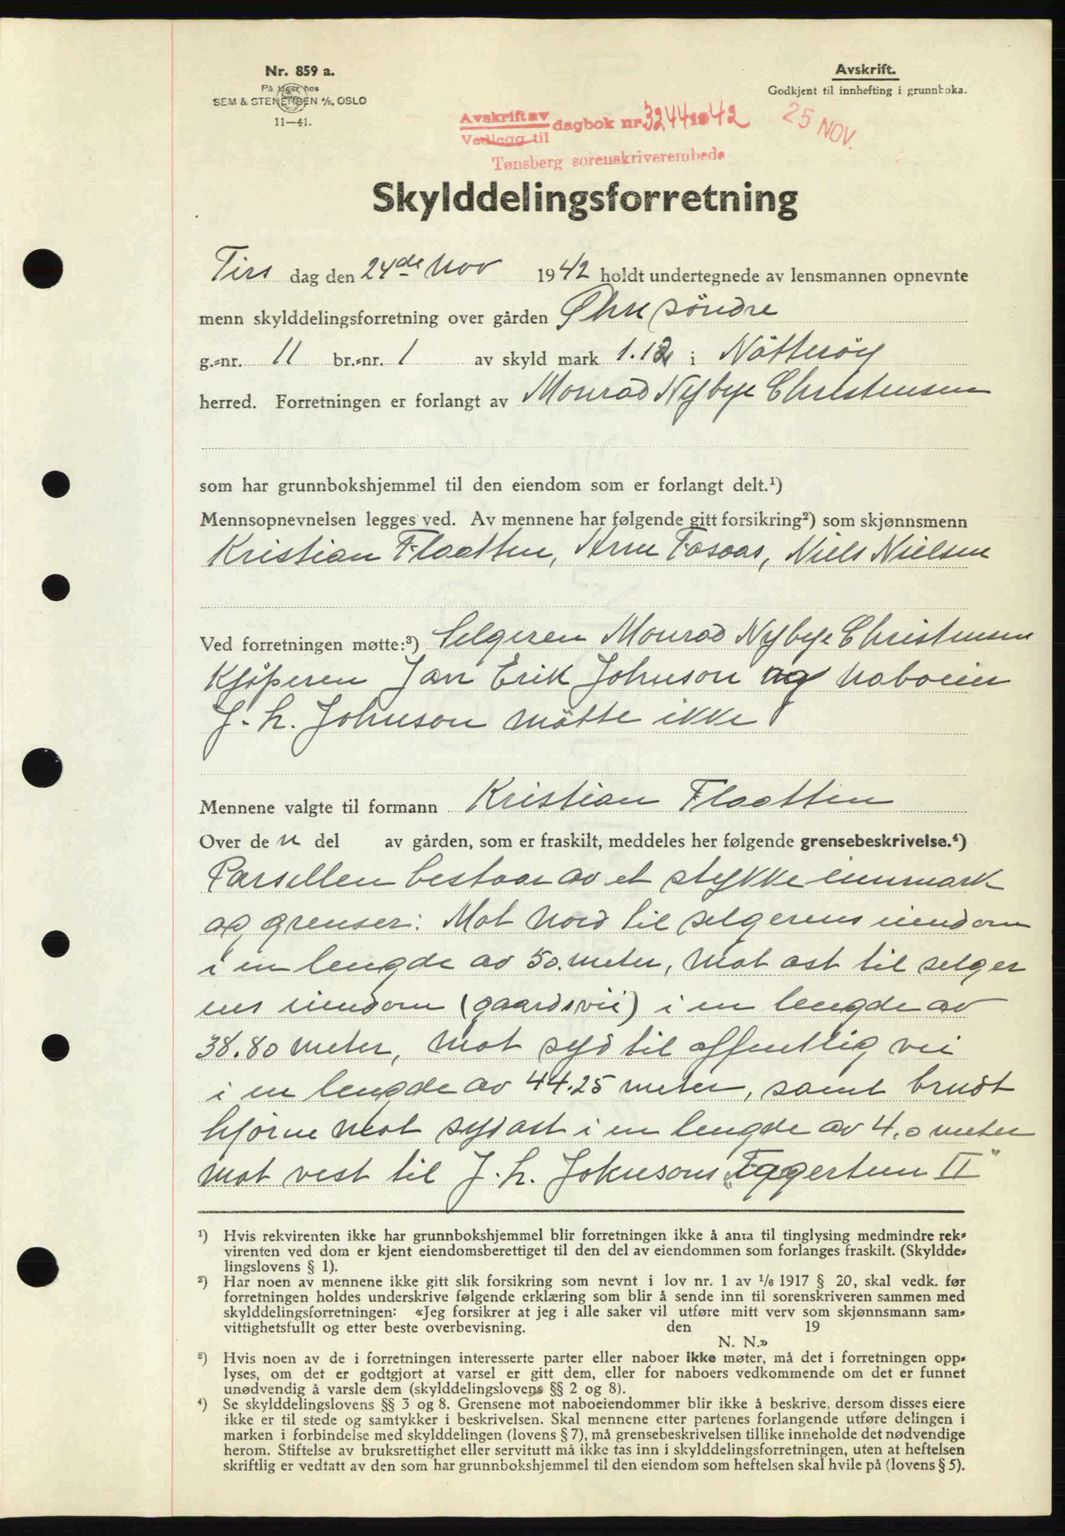 Nr. 859 a.
På lager hos
SEM & STENERSEN A/S, OSLO
11—41.
Avskrift.
Godkjent til innhefting i grunnboka.
Avskrift av
Vedlegg til
dagbok nr. 3244 1942
25 NOV.
Tønsberg sorenskriverembede
Skylddelingsforretning
Tirs dag den 24de Nov 1942 holdt undertegnede av lensmannen opnevnte
menn skylddelingsforretning over gården Ørs söndre
g.-nr. 11 br.-nr. 1 av skyld mark 1.12 i Nötteröy
herred. Forretningen er forlangt av Monrad Nybye Christensen
som har grunnbokshjemmel til den eiendom som er forlangt delt.¹)
Mennsopnevnelsen legges ved. Av mennene har følgende gitt forsikring²) som skjønnsmenn
Kristian Flaatten, Arne Fosaas, Niels Nielsen
Ved forretningen møtte:³) Selgeren Monrad Nybye Christensen
Kjöperen Jan Erik Johnson og naboeier
J. L. Johnson mötte ikke
Mennene valgte til formann Kristian Flaatten
Over de n del av gården, som er fraskilt, meddeles her følgende grensebeskrivelse.⁴)
Parsellen bestaar av et stykke innmark
og grenser: Mot Nord til selgerens eiendom
i en lengde av 50. meter, mot ost til selger
ens eiendom (gaardsvei) i en lengde av
38.80 meter, mot syd til offentlig vei
i en lengde av 44.25 meter, samt brudt
hjörne mot sydost i en lengde av 4.0 meter
mot vest til J. L. Johnsons „Fagertun II"
¹) Hvis rekvirenten ikke har grunnbokshjemmel blir forretningen ikke å anta til tinglysing medmindre rek-
virenten ved dom er kjent eiendomsberettiget til den del av eiendommen som forlanges fraskilt. (Skyldde-
lingslovens § 1).
²) Har noen av mennene ikke gitt slik forsikring som nevnt i lov nr. 1 av 1/6 1917 § 20, skal vedk. før
forretningen holdes underskrive følgende erklæring som blir å sende inn til sorenskriveren sammen med
skylddelingsforretningen: «Jeg forsikrer at jeg i alle saker vil utføre mitt verv som skjønnsmann sam-
vittighetsfullt og etter beste overbevisning. den 19
N. N.»
³) Hvis noen av de i forretningen interesserte parter eller naboer ikke møter, må det i forretningen opp-
lyses, om det er godtgjort at varsel er gitt dem, eller for naboers vedkommende om det er funnet
unødvendig å varsle dem (skylddelingslovens §§ 2 og 8).
⁴) Se skylddelingslovens §§ 3 og 8. Grensene mot naboeiendommer blir ikke å beskrive, dersom disses eiere
ikke er til stede og samtykker i beskrivelsen. Skal mennene etter partenes forlangende utføre delingen i
marken i forbindelse med skylddelingen (lovens § 7), må grensebeskrivelsen tillike inneholde det nødvendige
herom. Stiftelse av bruksrettighet eller servitutt må ikke tas inn i skylddelingsforretningen, uten at heftelsen
skriftlig er vedtatt av den som har grunnbokshjemmel til den eiendom som heftelsen skal hvile på (lovens § 5).